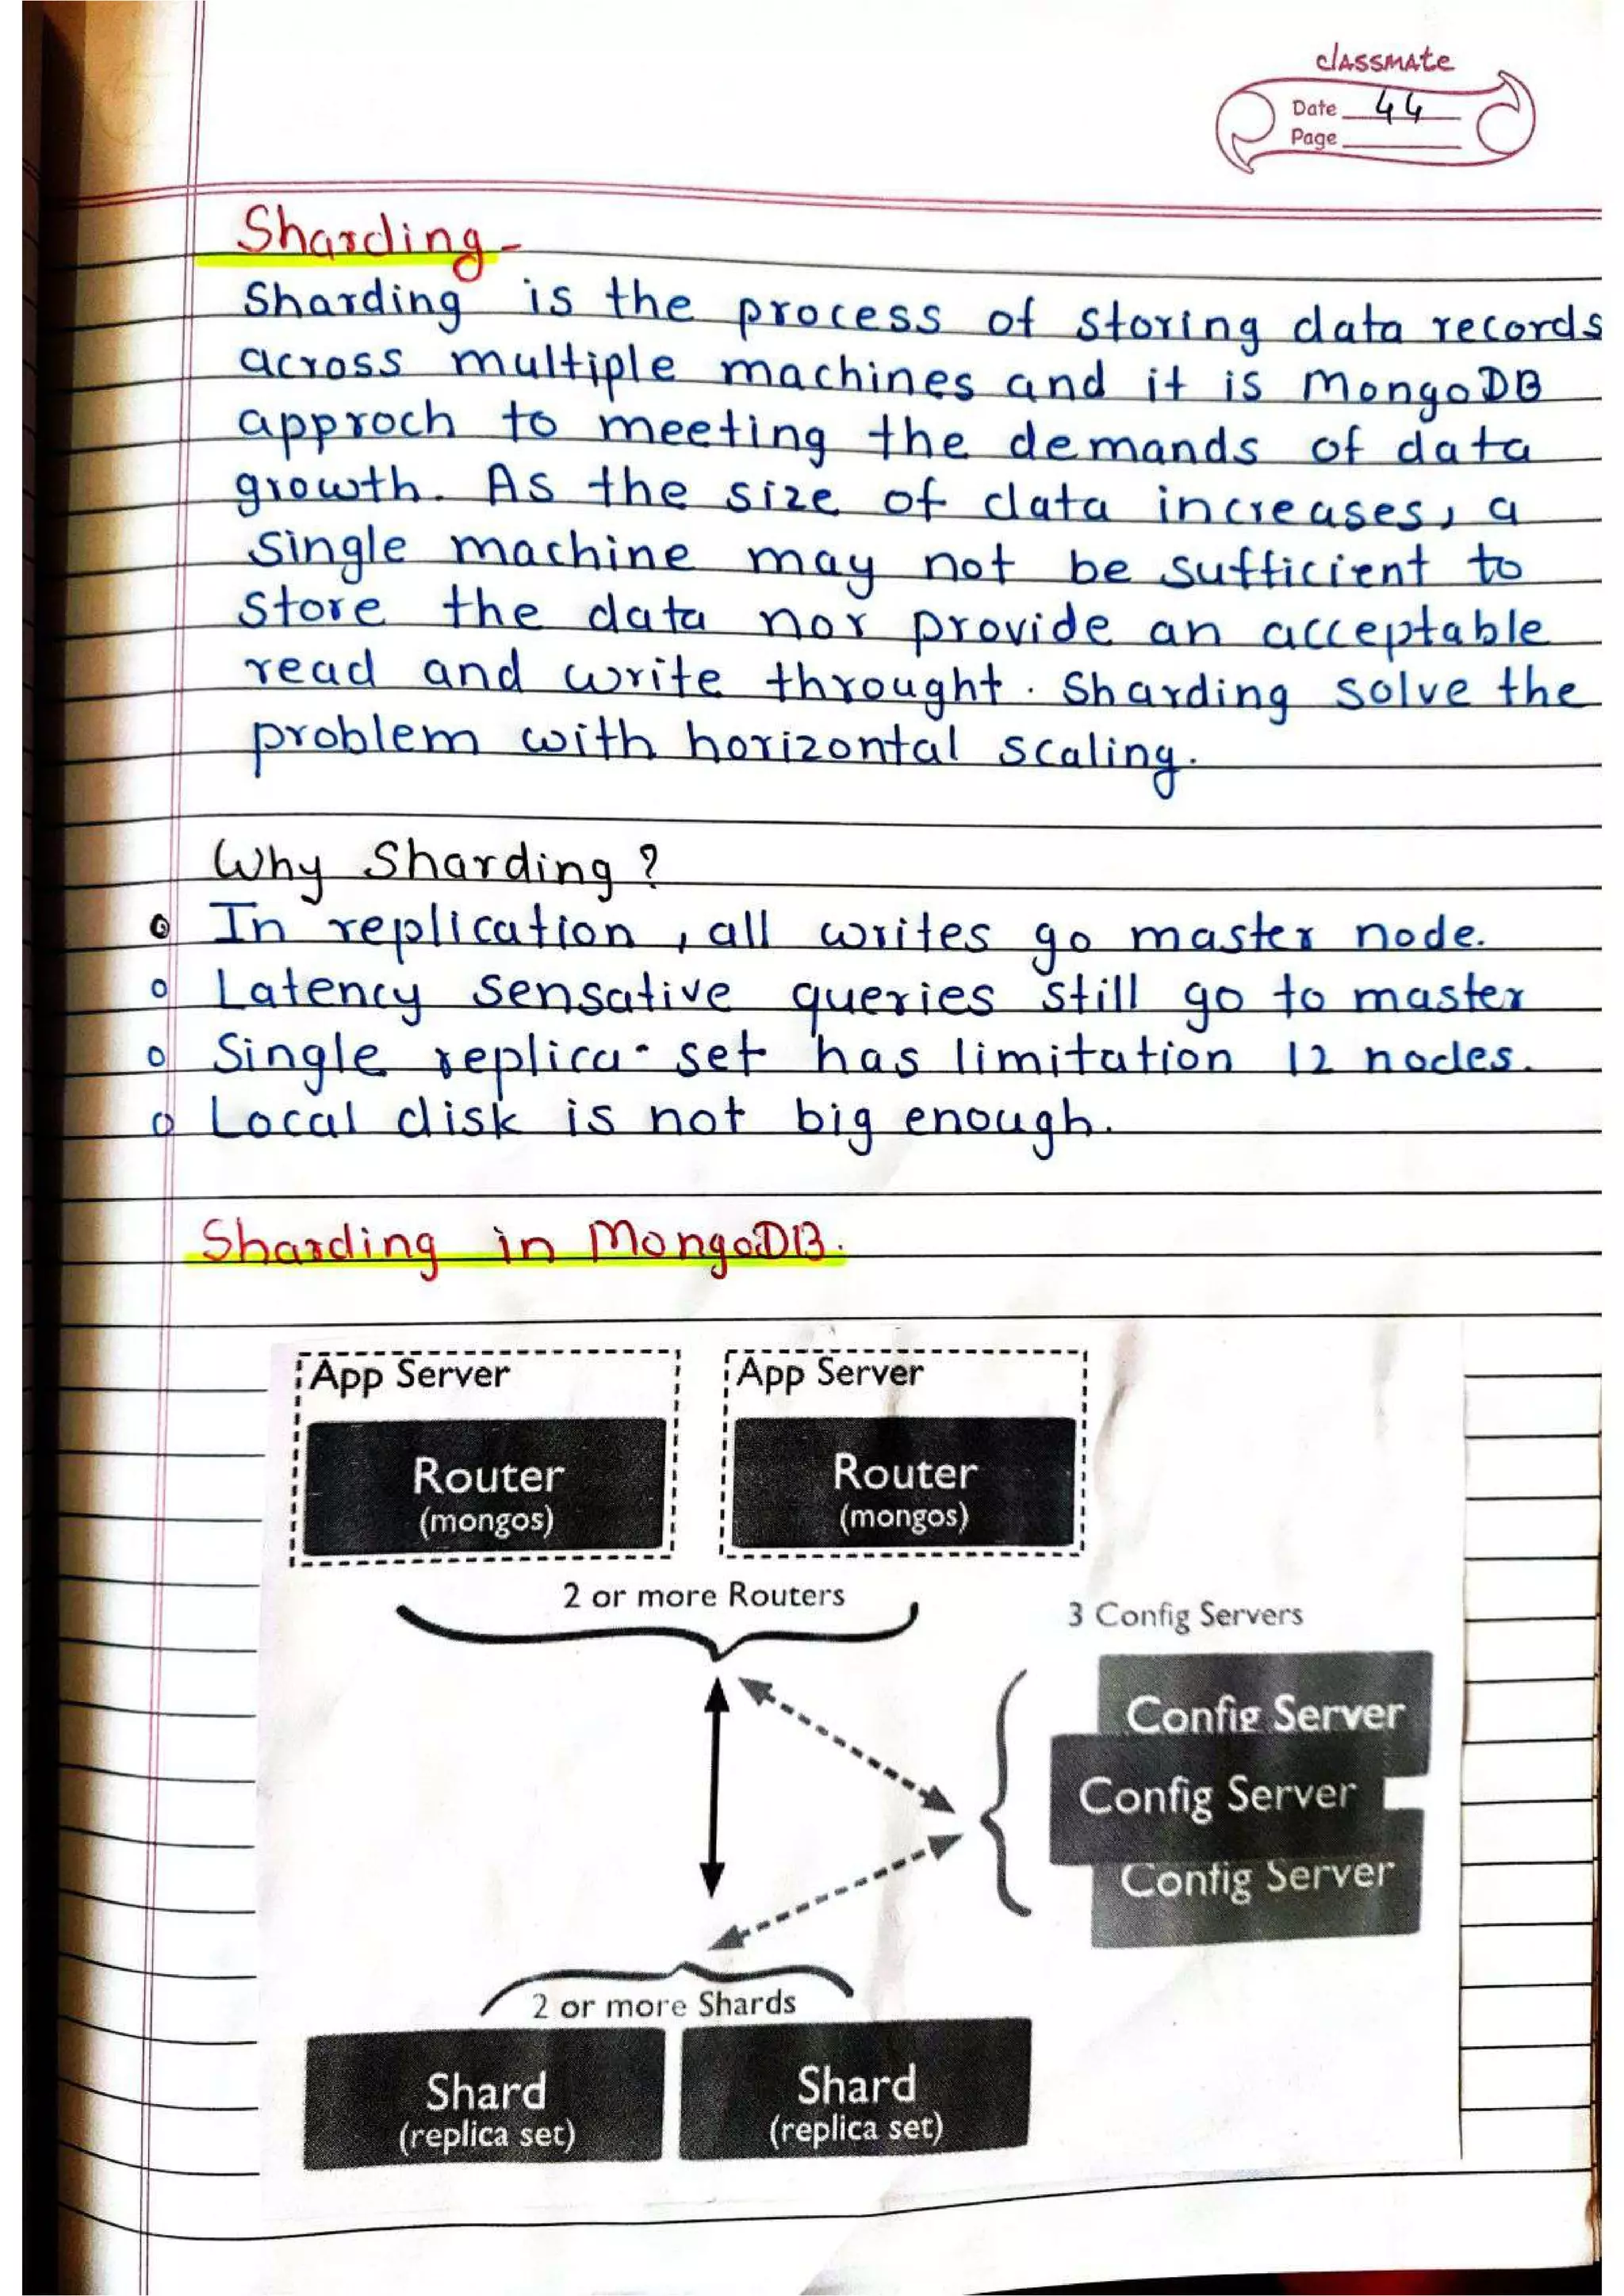 classmate
Date 44
Page
Sharding-
Sharding is the process of storing data records
across multiple machines and it is MongoDB
approch to meeting the demands of data
growth. As the size of data increases, a
single machine may not be sufficient to
store the data nor provide an acceptable
read and write throught. Sharding solve the
problem with horizontal scaling.
Why Sharding?
In replication, all writes go master node.
Latency sensative queries still go to master
Single replica-set has limitation 12 nodes.
Local disk is not big enough.
Sharding in MongoDB.
App Server App Server
Router Router
(mongos) (mongos)
2 or more Routers
3 Config Servers
Config Server
Config Server
Config Server
2 or more Shards
Shard Shard
(replica set) (replica set)